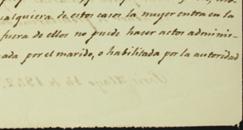 alquiera de estos casos la muger entra en la
fuera de ellos no puede hacer actos adminis-
ada por el marido, o habilitada por la autoridad